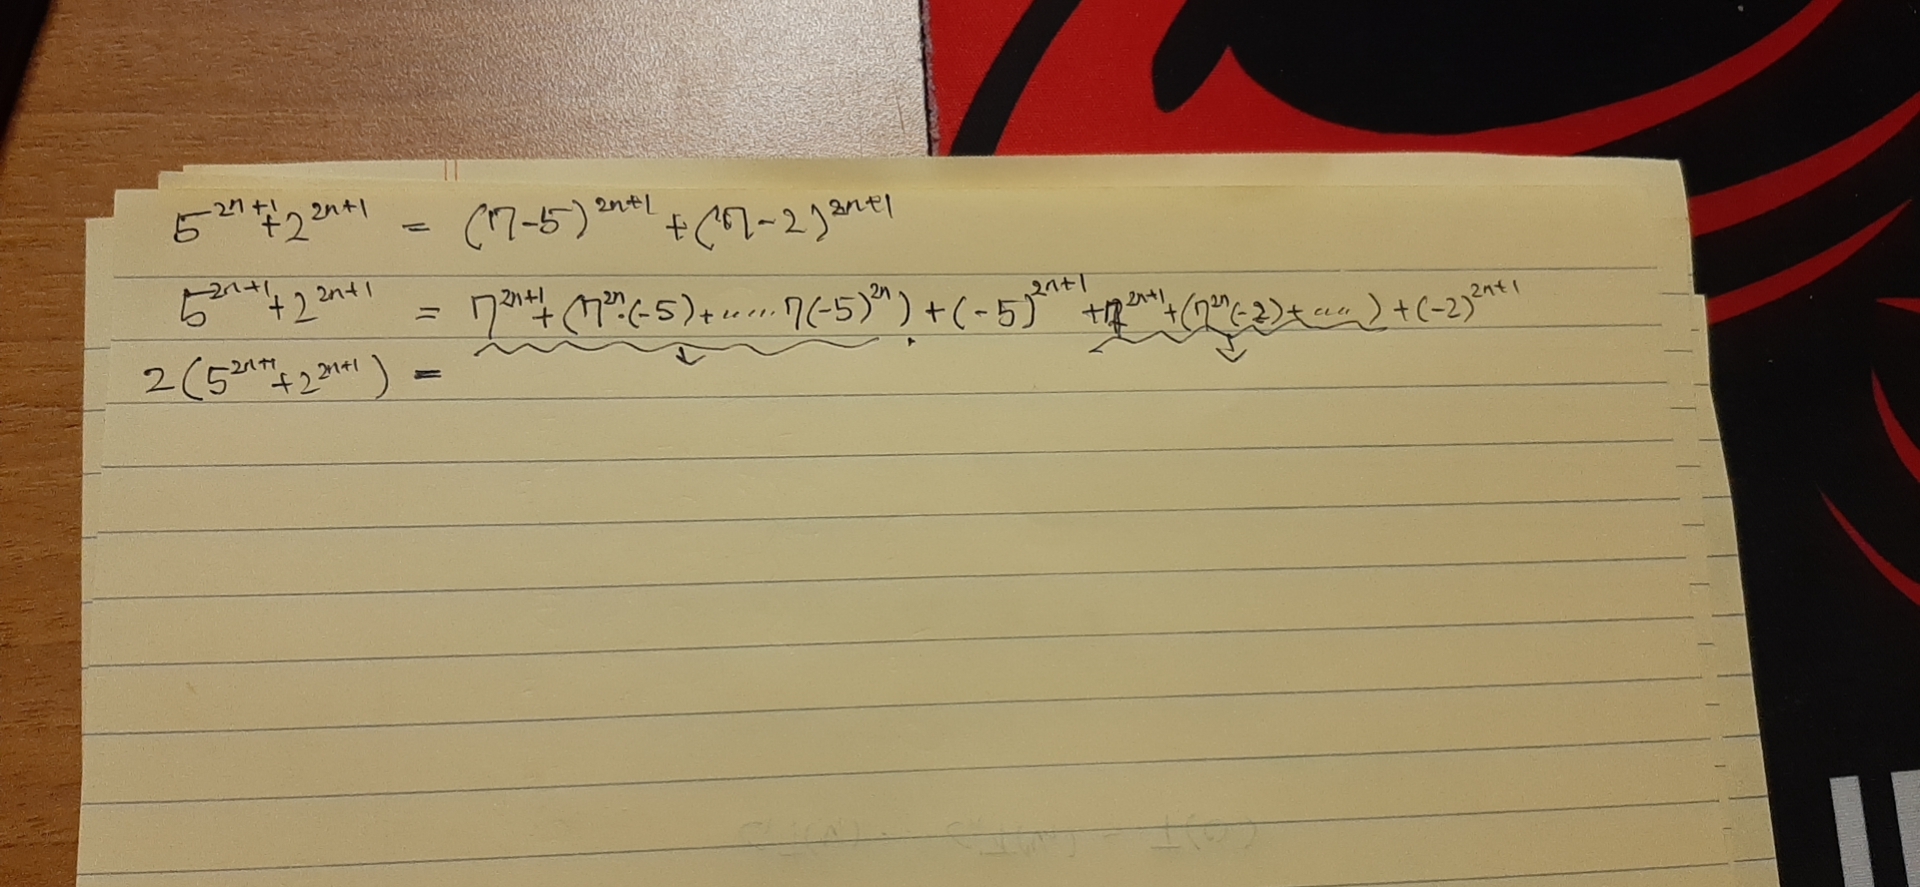 5^{2n+1} + 2^{2n+1} = (7-5)^{2n+1} + (7-2)^{2n+1}
5^{2n+1} + 2^{2n+1} = 7^{2n+1} + (7^{2n}·(-5) + ...... 7(-5)^{2n}) + (-5)^{2n+1} + 7^{2n+1} + (7^{2n}(-2) + .....) + (-2)^{2n+1}
2(5^{2n+1} + 2^{2n+1}) =